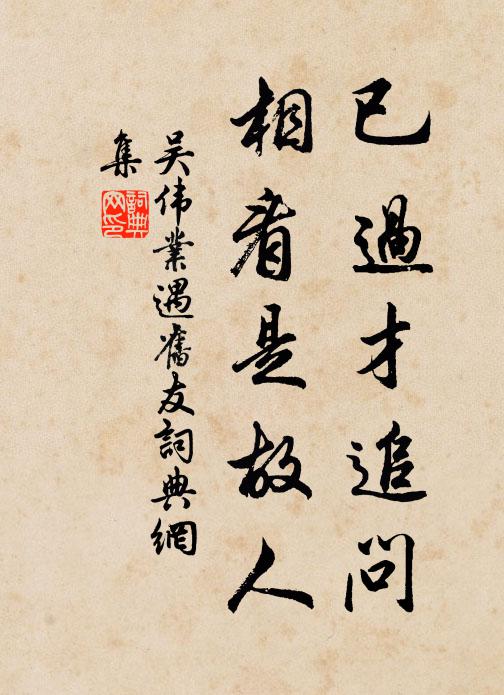 已過才追問
相看是故人
吴伟業遇舊友詞典網
集
詞典网印